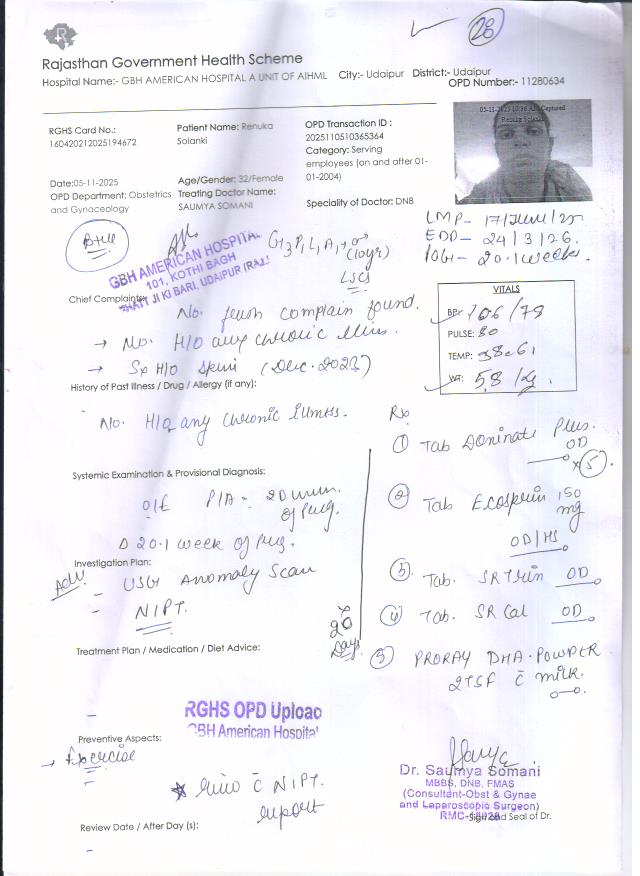 28
Rajasthan Government Health Scheme
Hospital Name:- GBH AMERICAN HOSPITAL A UNIT OF AIHML City:- Udaipur District:- Udaipur
OPD Number:- 11280634
RGHS Card No.:
160420212025194672
Patient Name: Renuka
Solanki
OPD Transaction ID :
2025110510365364
Category: Serving
employees (on and after 01-
01-2004)
05-11-2025 10:36 AM Captured
Renuka Solanki
Date:05-11-2025
OPD Department: Obstetrics
and Gynaceology
Age/Gender: 32/Female
Treating Doctor Name:
SAUMYA SOMANI
Speciality of Doctor: DNB
LMP - 17/June/25
EDD - 24/3/26.
POG - 20.1 weeks.
GBH AMERICAN HOSPITAL
101, KOTHI BAGH
BHATT JI KI BARI, UDAIPUR (RAJ.)
G3 P1 L1 A1
(10yr)
LSCS
Chief Complaint
No. fresh complain found.
→ No. H/O any chronic illness.
→ (Dec. 2023)
VITALS
BP: 106/78
PULSE: 80
TEMP:
WT: 58 /kg.
History of Past Illness / Drug / Allergy (if any):
No. H/O any chronic illness.
Rx
① Tab Doninate Plus.
OD
x 5
Systemic Examination & Provisional Diagnosis:
O/E P/A =
of Preg.
② Tab Ecosprin 150
mg
OD/HS
20.1 week of Preg.
Investigation Plan:
Adv.
- USG Anomaly Scan
- NIPT.
③ Tab. SR Trin OD
④ Tab. SR Cal OD
x 20
Days
Treatment Plan / Medication / Diet Advice:
⑤ PRORAY DHA POWDER
2TSF c milk.
RGHS OPD Upload
GBH American Hospital
Preventive Aspects:
→ Exercise
c NIPT.
report
Dr. Saumya Somani
MBBS, DNB, FMAS
(Consultant-Obst & Gynae
and Laparoscopic Surgeon)
Sign and Seal of Dr.
Review Date / After Day (s):